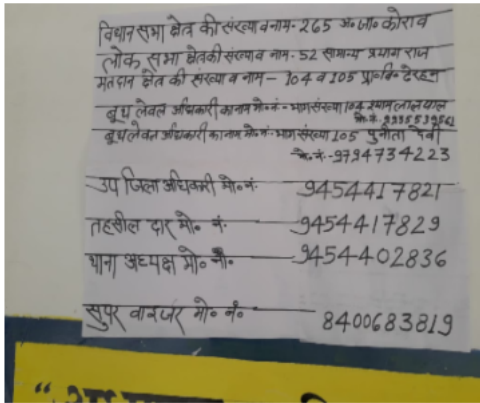 विधान सभा क्षेत्र की संख्या व नाम- 265 अ० जा० कोरांव
लोक सभा क्षेत्र की संख्या व नाम- 52 सामान्य प्रयाग राज
मतदान क्षेत्र की संख्या व नाम- 104 व 105 प्रा० वि०
बूथ लेवल अधिकारी का नाम मो० नं०- भाग संख्या 104 श्याम लाल
बूथ लेवल अधिकारी का नाम मो० नं०- भाग संख्या 105 पुनीता देवी
मो० नं०-9794734223
उप जिला अधिकारी मो० नं० 9454417821
तहसील दार मो० नं० 9454417829
थाना अध्यक्ष मो० नं० 9454402836
सुपर वाइजर मो० नं० 8400683819